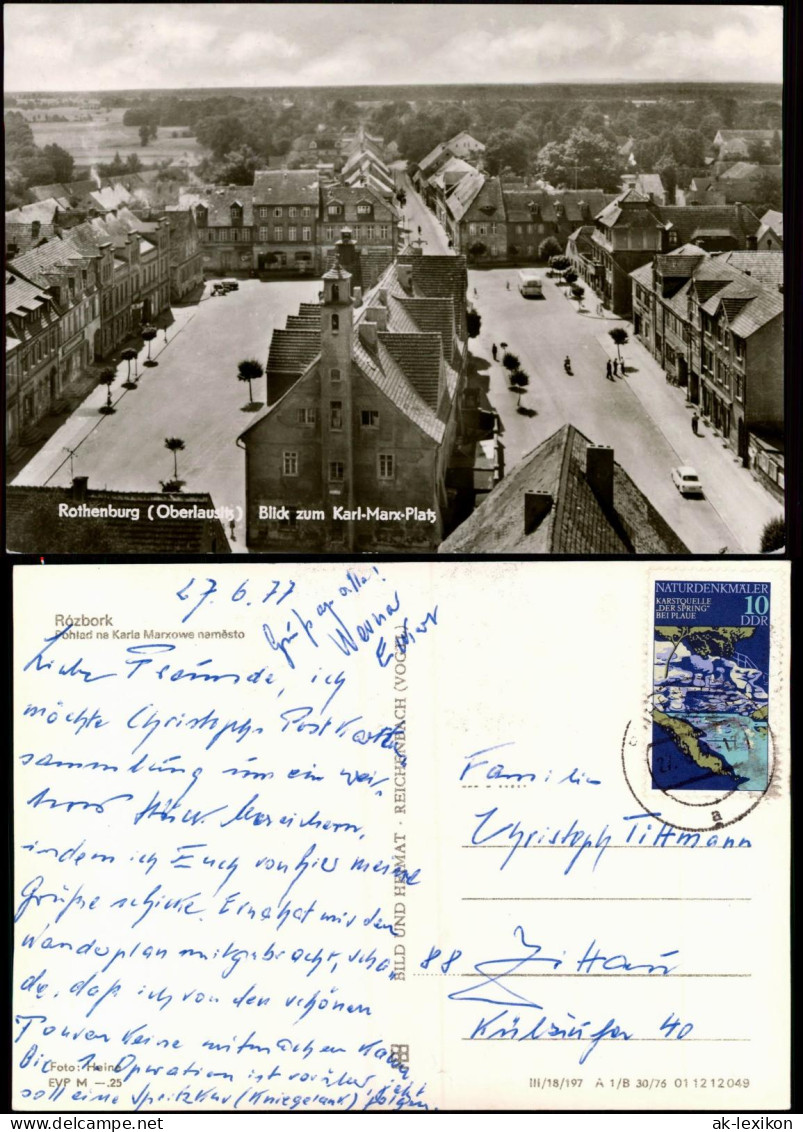 Rothenburg (Oberlausitz) Blick zum Karl-Marx-Platz
27.6.77
Rózbork
Pohlad na Karla Marxowe naměsto
Grüße an alle!
Werner
Liebe Freunde, ich
möchte Christophs Postkarten
sammlung um ein wei-
Stück bereichern,
indem ich Euch von hier meine
Grüße schicke. hat mir den
Wanderplan mitgebracht, scha-
de, daß ich von den schönen
Touren keine mitmachen kann
Die 1. Operation ist vorüber, jetzt
soll eine Spritzkur (Kniegelenk) folgen.
Foto: Heine
EVP M —.25
BILD UND HEIMAT · REICHENBACH (VOGTL.)
NATURDENKMÄLER
KARSTQUELLE
„DER SPRING"
BEI PLAUE
10
DDR
a
Familie
Christoph Tittmann
88 Zittau
Külzufer 40
III/18/197 A 1/B 30/76 01 12 12 049
ak-lexikon